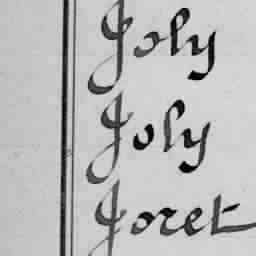 Joly
Joly
Joret